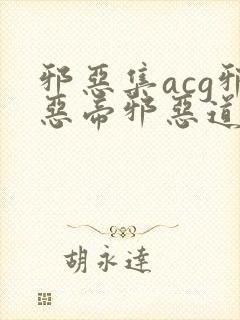 邪恶集acg邪
恶帝邪恶道
胡永達